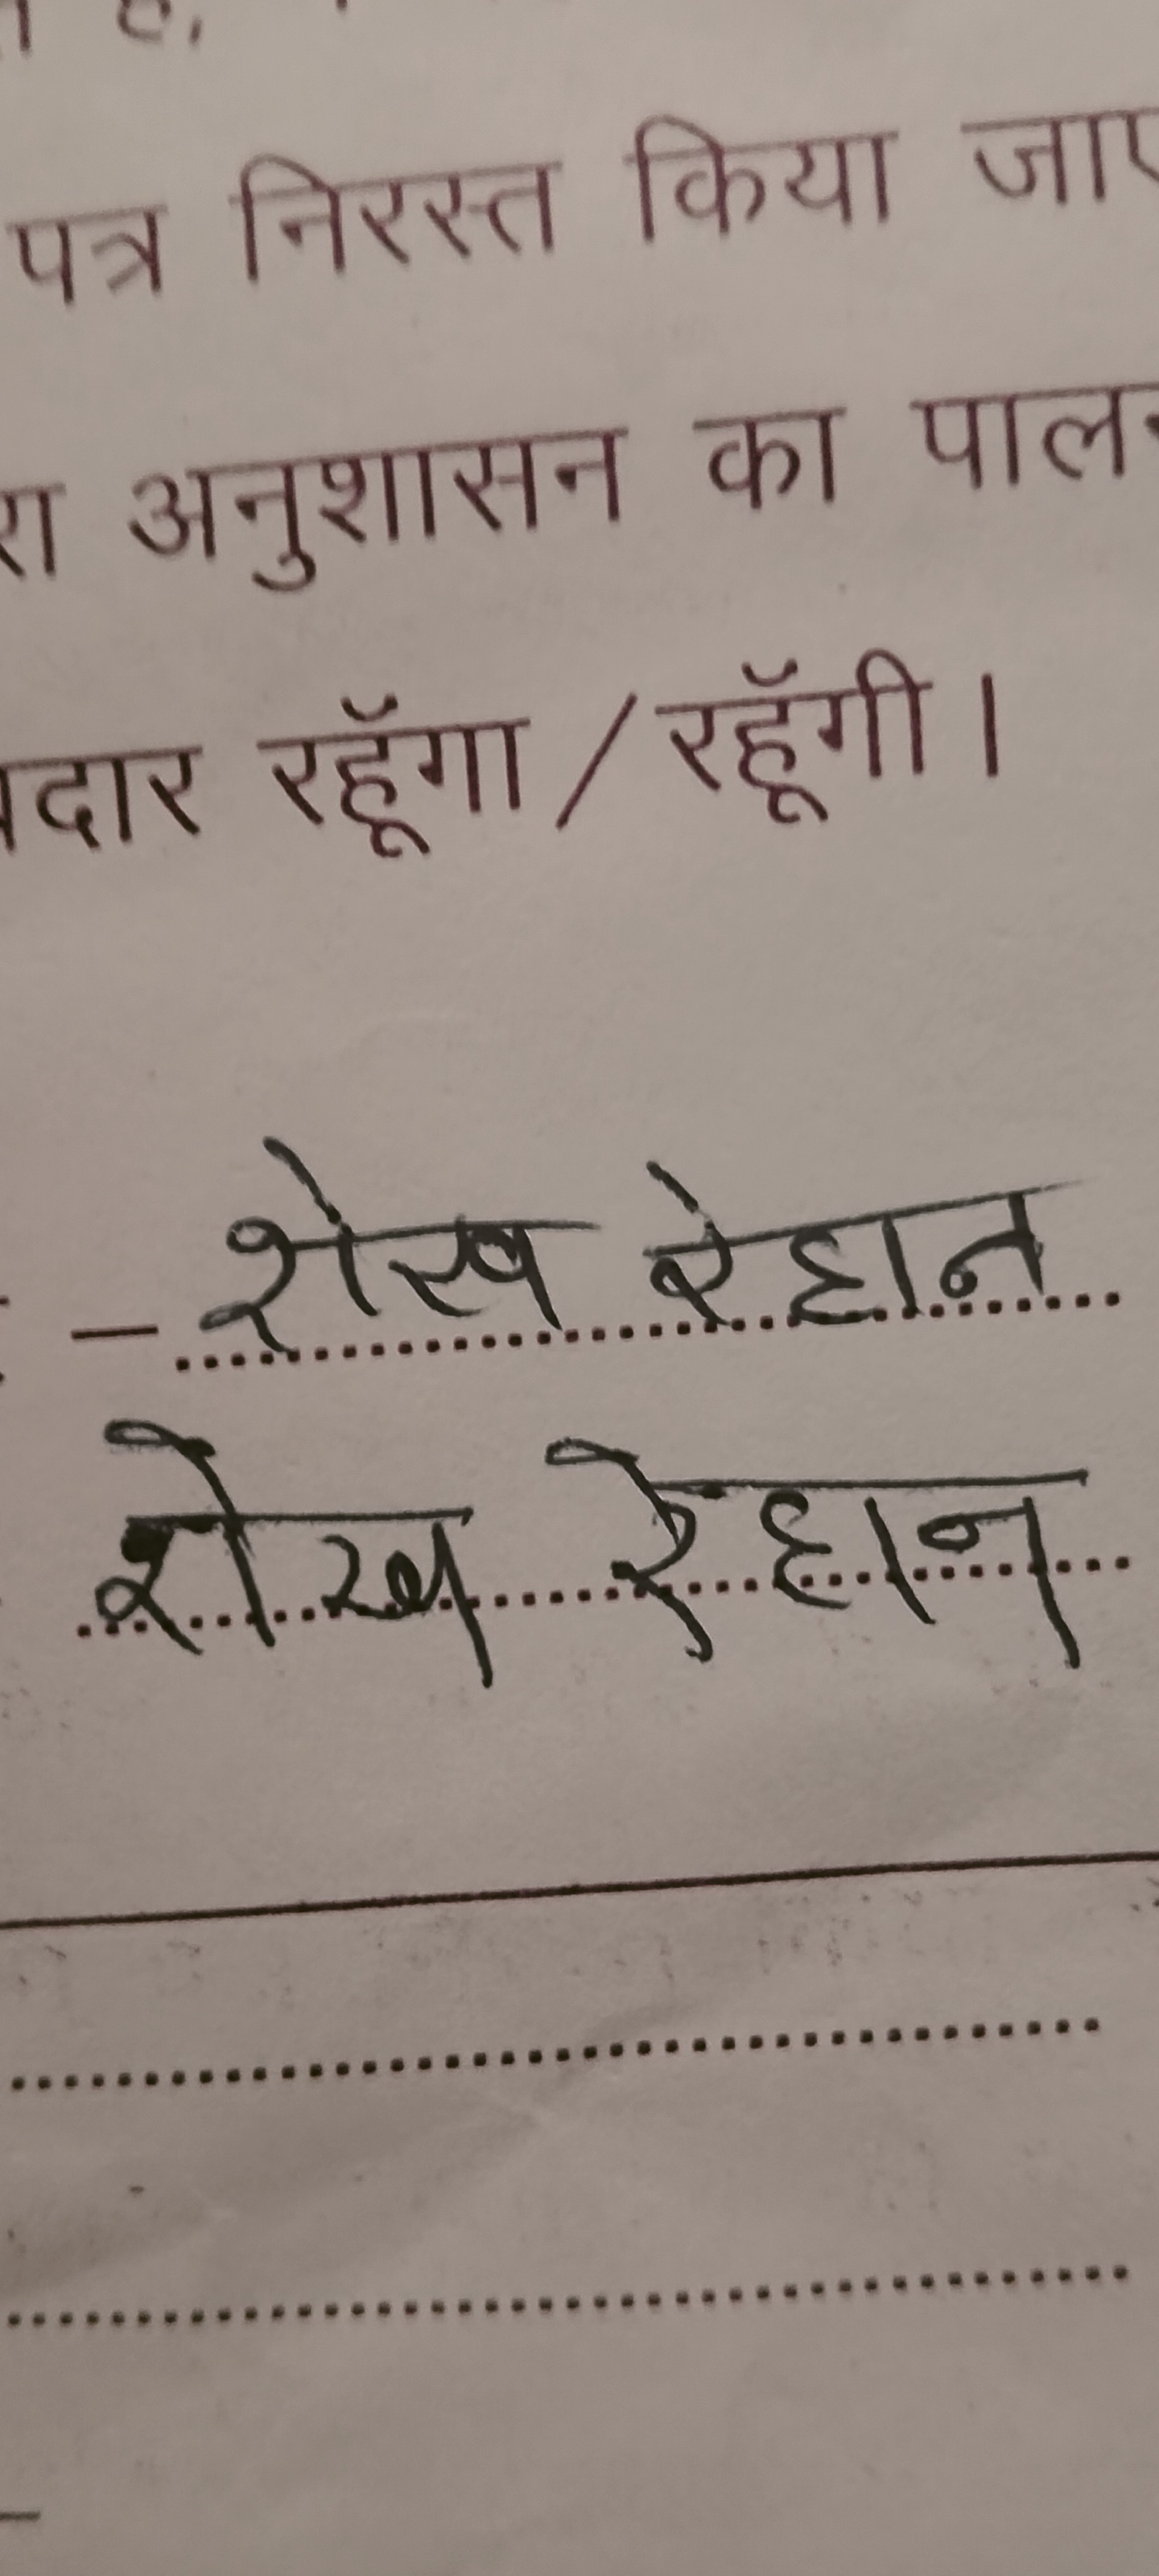 पत्र निरस्त किया
अनुशासन का
रहूँगा / रहूँगी ।
– शेख रेहान
शेख रेहान